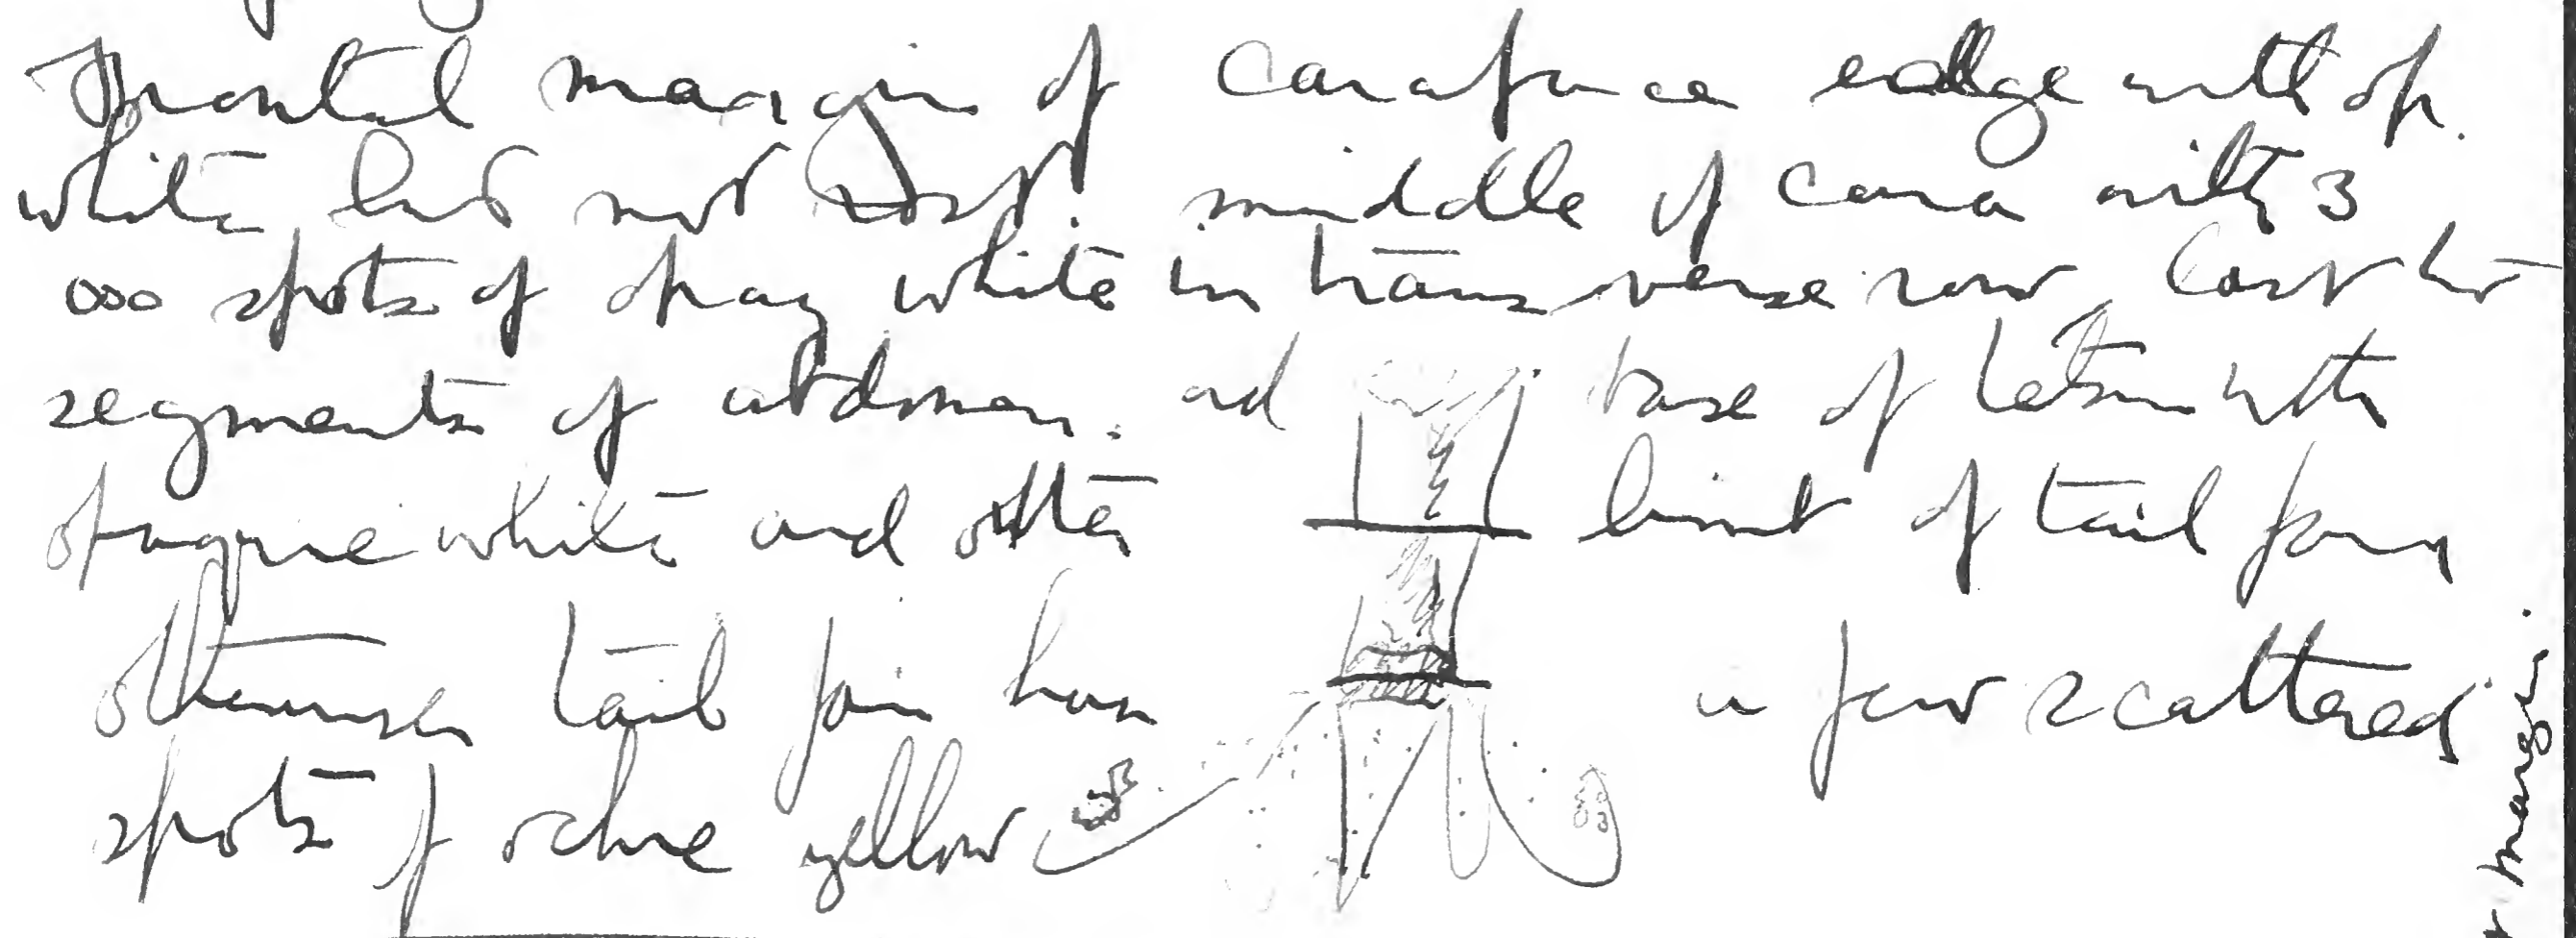 Frontal margin of carapace edge with op.
white but not rost. middle of cara with 3
ooo spots of opaq white in transverse row, last two
segments of abdomen. ad base of telson with
opaque white and otter limit of tail fan
otherwise tail fan has a few scattered
spots of ochre yellow
margin.